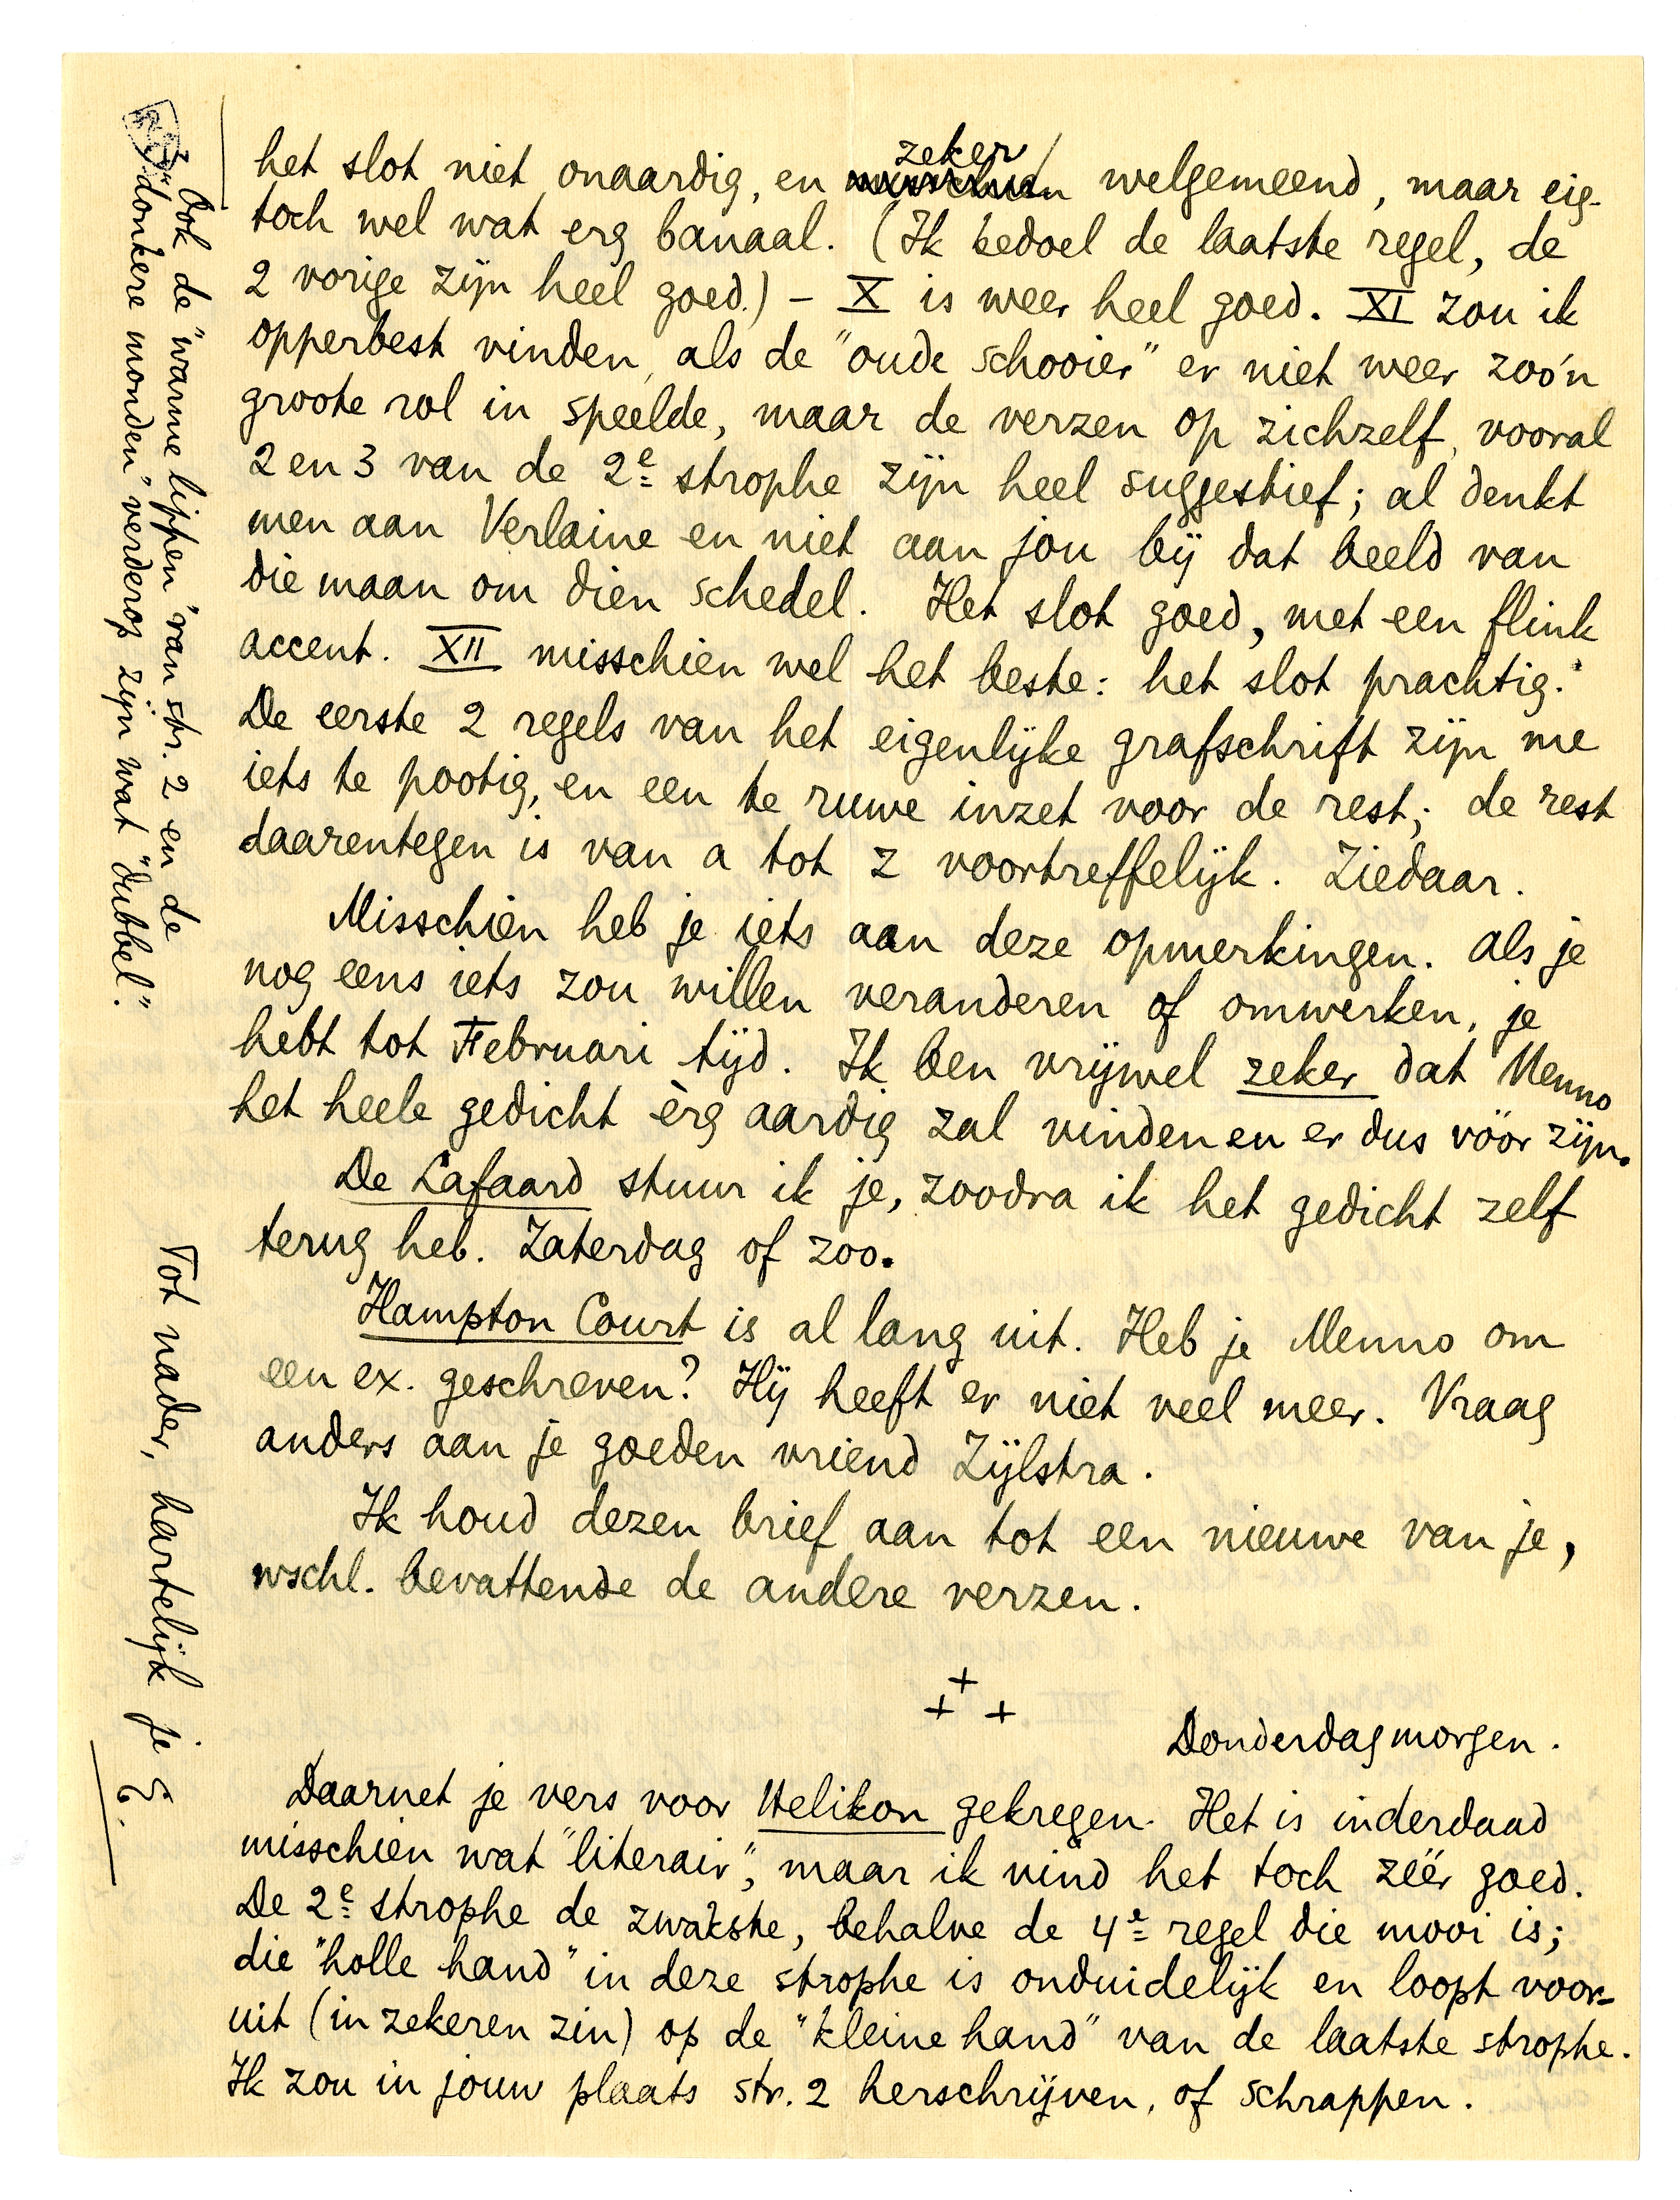 het slot niet onaardig, en zeker welgemeend, maar eig.
toch wel wat erg banaal. (Ik bedoel de laatste regel, de
2 vorige zijn heel goed.) – X is weer heel goed. XI zou ik
opperbest vinden, als de "oude schooier" er niet weer zoo'n
groote rol in speelde, maar de verzen op zichzelf, vooral
2 en 3 van de 2e strophe zijn heel suggestief; al denkt
men aan Verlaine en niet aan jou bij dat beeld van
die maan om dien schedel. Het slot goed, met een flink
accent. XII misschien wel het beste: het slot prachtig.
De eerste 2 regels van het eigenlijke grafschrift zijn me
iets te pootig, en een te ruwe inzet voor de rest; de rest
daarentegen is van a tot z voortreffelijk. Ziedaar.
Misschien heb je iets aan deze opmerkingen. Als je
nog eens iets zou willen veranderen of omwerken, je
hebt tot Februari tijd. Ik ben vrijwel zeker dat Menno
het heele gedicht èrg aardig zal vinden en er dus vóór zijn.
De Lafaard stuur ik je, zoodra ik het gedicht zelf
terug heb. Zaterdag of zoo.
Hampton Court is al lang uit. Heb je Menno om
een ex. geschreven? Hij heeft er niet veel meer. Vraag
anders aan je goeden vriend Zijlstra.
Ik houd dezen brief aan tot een nieuwe van je,
wschl. bevattende de andere verzen.
+ + +
Donderdagmorgen.
Daarnet je vers voor Helikon gekregen. Het is inderdaad
misschien wat "literair", maar ik vind het toch zéér goed.
De 2e strophe de zwakste, behalve de 4e regel die mooi is;
die "holle hand" in deze strophe is onduidelijk en loopt voor-
uit (in zekeren zin) op de "kleine hand" van de laatste strophe.
Ik zou in jouw plaats str. 2 herschrijven, of schrappen.
Ook de "warme lippen" van str. 2 en de
"donkere monden" verderop zijn wat "dubbel".
Tot nader, hartelijk je E.